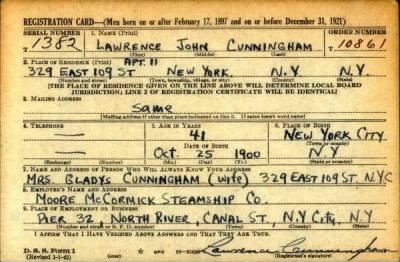 REGISTRATION CARD—(Men born on or after February 17, 1897 and on or before December 31, 1921)
SERIAL NUMBER 1. NAME (Print) ORDER NUMBER
T 1382 LAWRENCE JOHN CUNNINGHAM 10861
(First) (Middle) (Last)
2. PLACE OF RESIDENCE (Print) APT. 11
329 EAST 109 ST. NEW YORK. N.Y. N.Y.
(Number and street) (Town, township, village, or city) (County) (State)
[THE PLACE OF RESIDENCE GIVEN ON THE LINE ABOVE WILL DETERMINE LOCAL BOARD
JURISDICTION; LINE 2 OF REGISTRATION CERTIFICATE WILL BE IDENTICAL]
3. MAILING ADDRESS
Same
[Mailing address if other than place indicated on line 2. If same insert word same]
4. TELEPHONE 5. AGE IN YEARS 6. PLACE OF BIRTH
— 41 NEW YORK CITY
DATE OF BIRTH (Town or county)
— Oct. 25 1900 N.Y.
(Exchange) (Number) (Mo.) (Day) (Yr.) (State or country)
7. NAME AND ADDRESS OF PERSON WHO WILL ALWAYS KNOW YOUR ADDRESS
MRS. GLADYS CUNNINGHAM (wife) 329 EAST 109 ST. NYC
8. EMPLOYER'S NAME AND ADDRESS
MOORE McCORMICK STEAMSHIP CO.
9. PLACE OF EMPLOYMENT OR BUSINESS
PIER 32, NORTH RIVER, CANAL ST., N.Y. CITY, N.Y.
(Number and street or R. F. D. number) (Town) (County) (State)
I AFFIRM THAT I HAVE VERIFIED ABOVE ANSWERS AND THAT THEY ARE TRUE.
D. S. S. Form 1 Lawrence Cunningham
(Revised 1-1-42) (Registrant's signature)